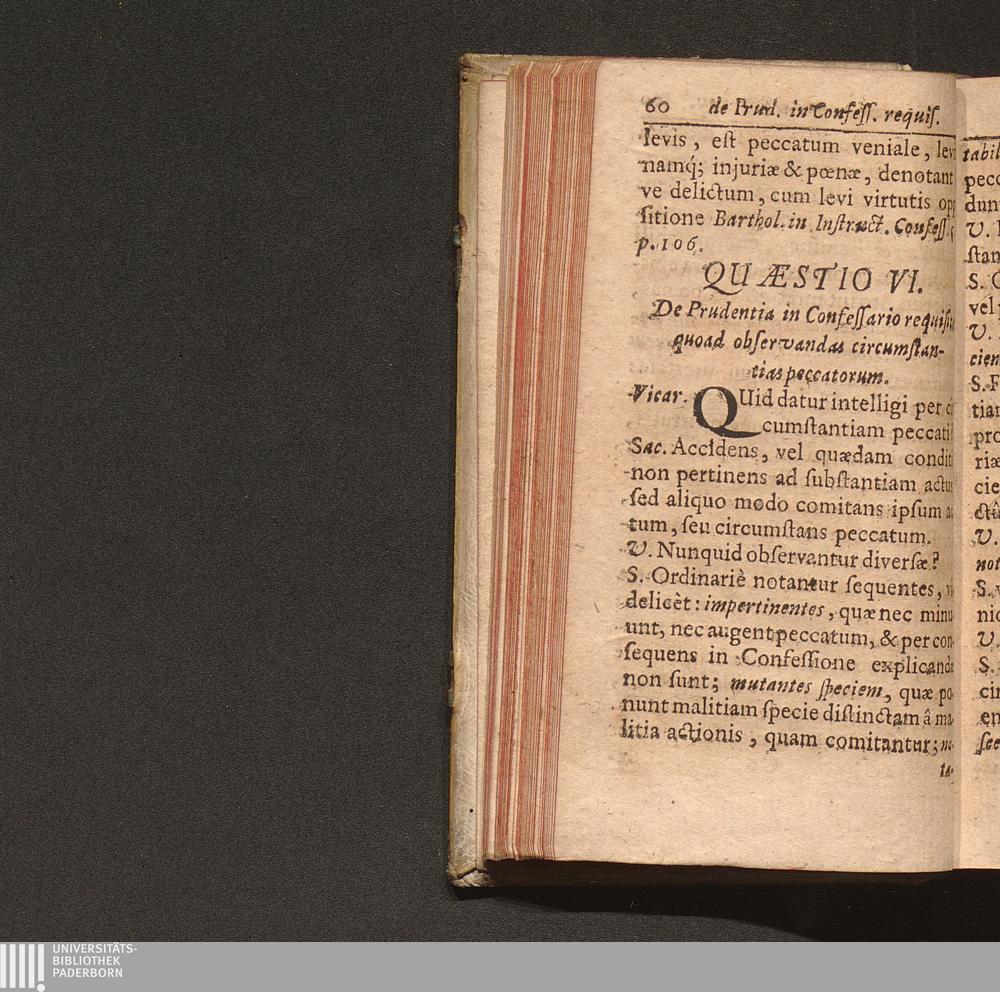 60 de Prud. in Confeſſ. requiſ.
levis, eſt peccatum veniale, levi
namq́; injuriæ & pœnæ, denotant
ve delictum, cum levi virtutis opp
ſitione Barthol. in Inſtruct. Confeſſ.
p. 106.
QUÆSTIO VI.
De Prudentia in Confeſſario requiſi
quoad obſervandas circumſtan-
tias peccatorum.
Vicar. QUid datur intelligi per ci
cumſtantiam peccati
Sac. Accidens, vel quædam condit
non pertinens ad ſubſtantiam actus
ſed aliquo modo comitans ipſum a
tum, ſeu circumſtans peccatum.
V. Nunquid obſervantur diverſæ?
S. Ordinariè notantur ſequentes, vi
delicèt: impertinentes, quæ nec minu
unt, nec augent peccatum, & per con-
ſequens in Confeſſione explicanda
non ſunt; mutantes ſpeciem, quæ po
nunt malitiam ſpecie diſtinctam â ma-
litia actionis, quam comitantur;
ta-
tabil
pecc
dun
V.
ſtan
S.
vel
V.
cien
S. F
tian
pro
riæ
cie
ctû
V.
not
S. v
nic
V.
S.
cir
en
ſec
UNIVERSITÄTS-
BIBLIOTHEK
PADERBORN